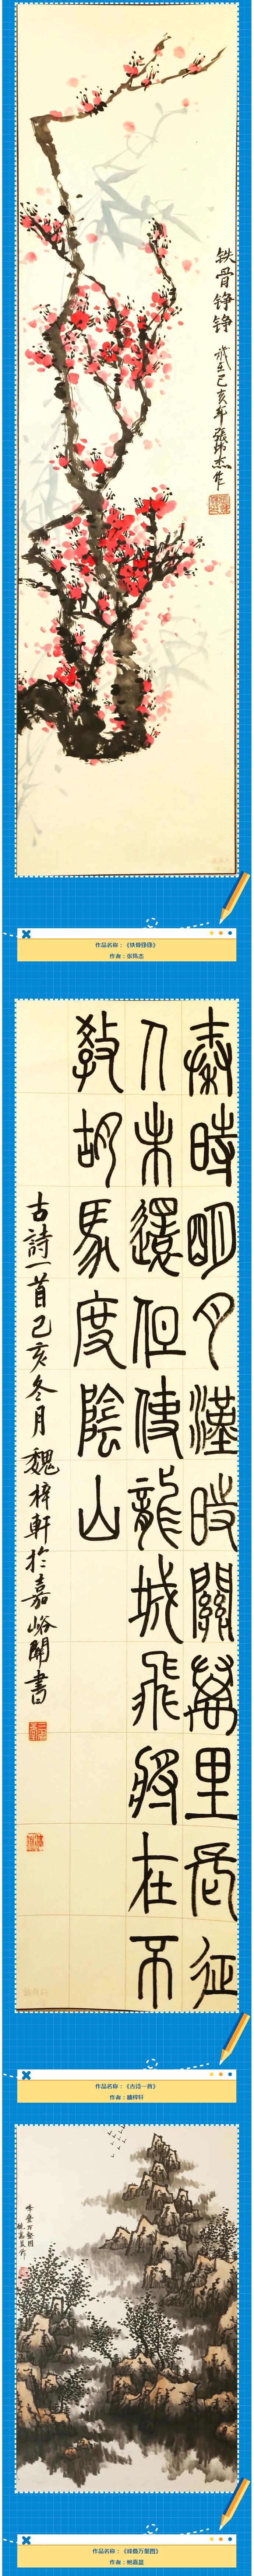 铁骨铮铮
歲在己亥年張炜杰作
作品名称：《铁骨铮铮》
作者：张炜杰
秦時明月漢時關萬里長征
人未還但使龍城飛將在不
教胡馬度陰山
古詩一首己亥冬月魏梓軒於嘉峪關書
作品名称：《古诗一首》
作者：魏梓轩
作品名称：《峰叠万壑图》
作者：